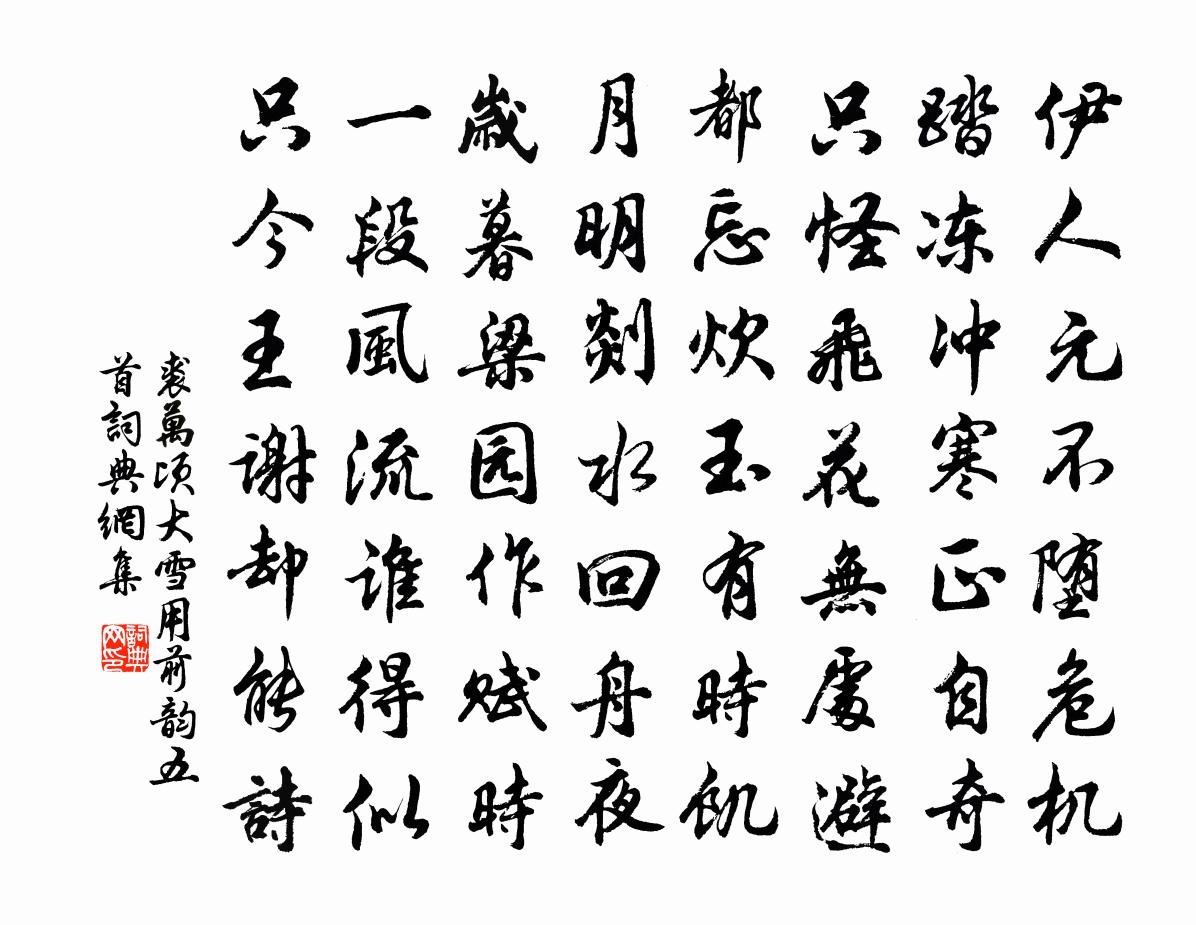 伊人元不堕危机
踏冻冲寒正自奇
只怪飛花無處避
都忘炊玉有時飢
月明剡水回舟夜
歲暮梁园作赋時
一段風流谁得似
只今王谢却能詩
裘萬顷大雪用前韵五
首詞典網集
詞典网印